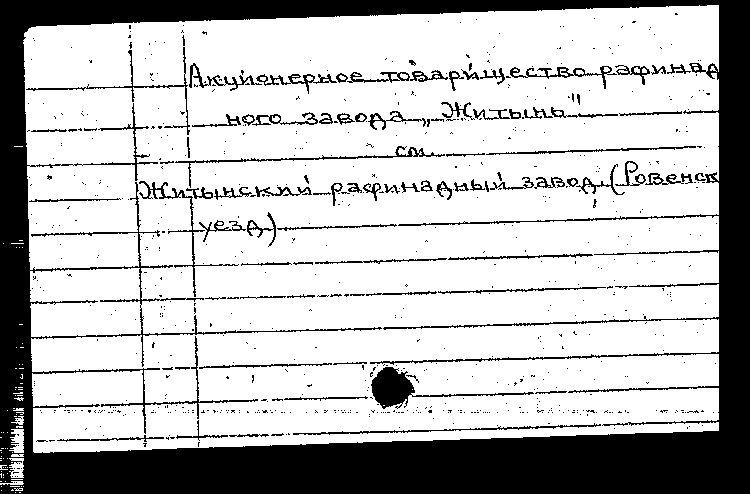 Акционерное товарищество рафинад
ного завода „Житынь"
см.
Житынский рафинадный завод (Ровенск
уезд)